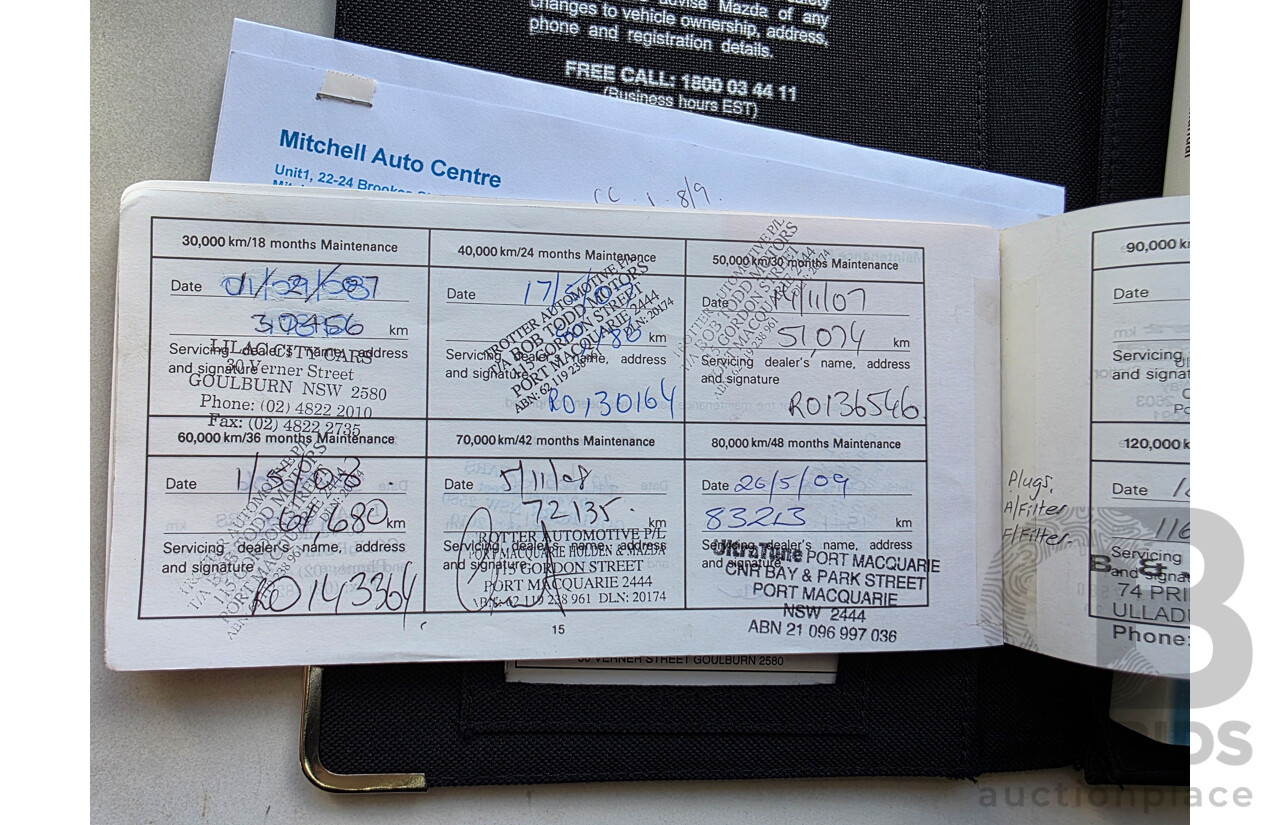 advise Mazda of any
changes to vehicle ownership, address,
phone and registration details.
FREE CALL: 1800 03 44 11
(Business hours EST)
Mitchell Auto Centre
Unit1, 22-24
8/9
30,000 km/18 months Maintenance
Date
km
Servicing dealer's name, address
and signature
LILAC CITY CARS
30 Verner Street
GOULBURN NSW 2580
Phone: (02) 4822 2010
Fax: (02) 4822 2735
40,000 km/24 months Maintenance
Date 17/5/
km
Servicing dealer's name, address
and signature
TROTTER AUTOMOTIVE P/L
T/A BOB TODD MOTORS
115 GORDON STREET
PORT MACQUARIE 2444
ABN: 62 119 238 961 DLN: 20174
RO130164
50,000 km/30 months Maintenance
Date /11/07
51,074 km
Servicing dealer's name, address
and signature
TROTTER AUTOMOTIVE P/L
T/A BOB TODD MOTORS
115 GORDON STREET
PORT MACQUARIE 2444
ABN: 62 119 238 961 DLN: 20174
RO136546
60,000 km/36 months Maintenance
Date
61,680 km
Servicing dealer's name, address
and signature
AUTOMOTIVE P/L
T/A BOB TODD MOTORS
115 GORDON STREET
PORT MACQUARIE 2444
DLN: 20174
RO143364
70,000 km/42 months Maintenance
Date 5/11/08
72135 km
Servicing dealer's name, address
and signature
TROTTER AUTOMOTIVE P/L
T/A PORT MACQUARIE HOLDEN & MAZDA
115 GORDON STREET
PORT MACQUARIE 2444
ABN: 62 119 238 961 DLN: 20174
80,000 km/48 months Maintenance
Date 26/5/09
83213 km
Servicing dealer's name, address
and signature
UltraTune PORT MACQUARIE
CNR BAY & PARK STREET
PORT MACQUARIE
NSW 2444
ABN 21 096 997 036
15
30 VERNER STREET GOULBURN 2580
90,000 k
Date
Servicing
and signat
120,000 k
Plugs.
A/Filter
F/Filter.
Date
116
Servicing
and signa
B. &
74 PRI
ULLAD
Phone:
auctionplace